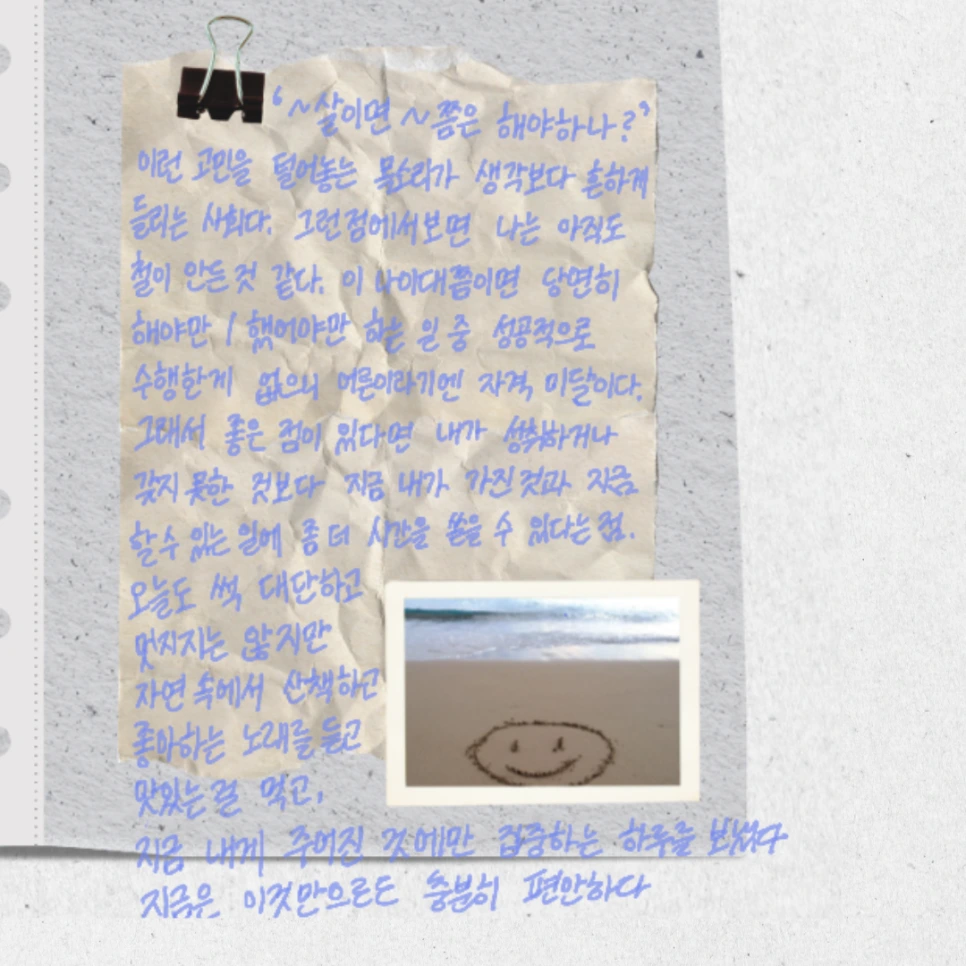 '~살이면 ~쯤은 해야하나?'
이런 고민을 털어놓는 목소리가 생각보다 흔하게
들리는 사회다. 그런점에서보면 나는 아직도
철이 안든것 같다. 이 나이대쯤이면 당연히
해야만 / 했어야만 하는 일 중 성공적으로
수행한게 없으니 어른이라기엔 자격 미달이다.
그래서 좋은 점이 있다면 내가 성취하거나
갖지 못한 것보다 지금 내가 가진것과 지금
할수 있는 일에 좀 더 시간을 쏟을 수 있다는점.
오늘도 썩 대단하고
멋지지는 않지만
자연 속에서 산책하고
좋아하는 노래를 듣고
맛있는걸 먹고,
지금 내게 주어진 것에만 집중하는 하루를 보냈다
지금은 이것만으로도 충분히 편안하다